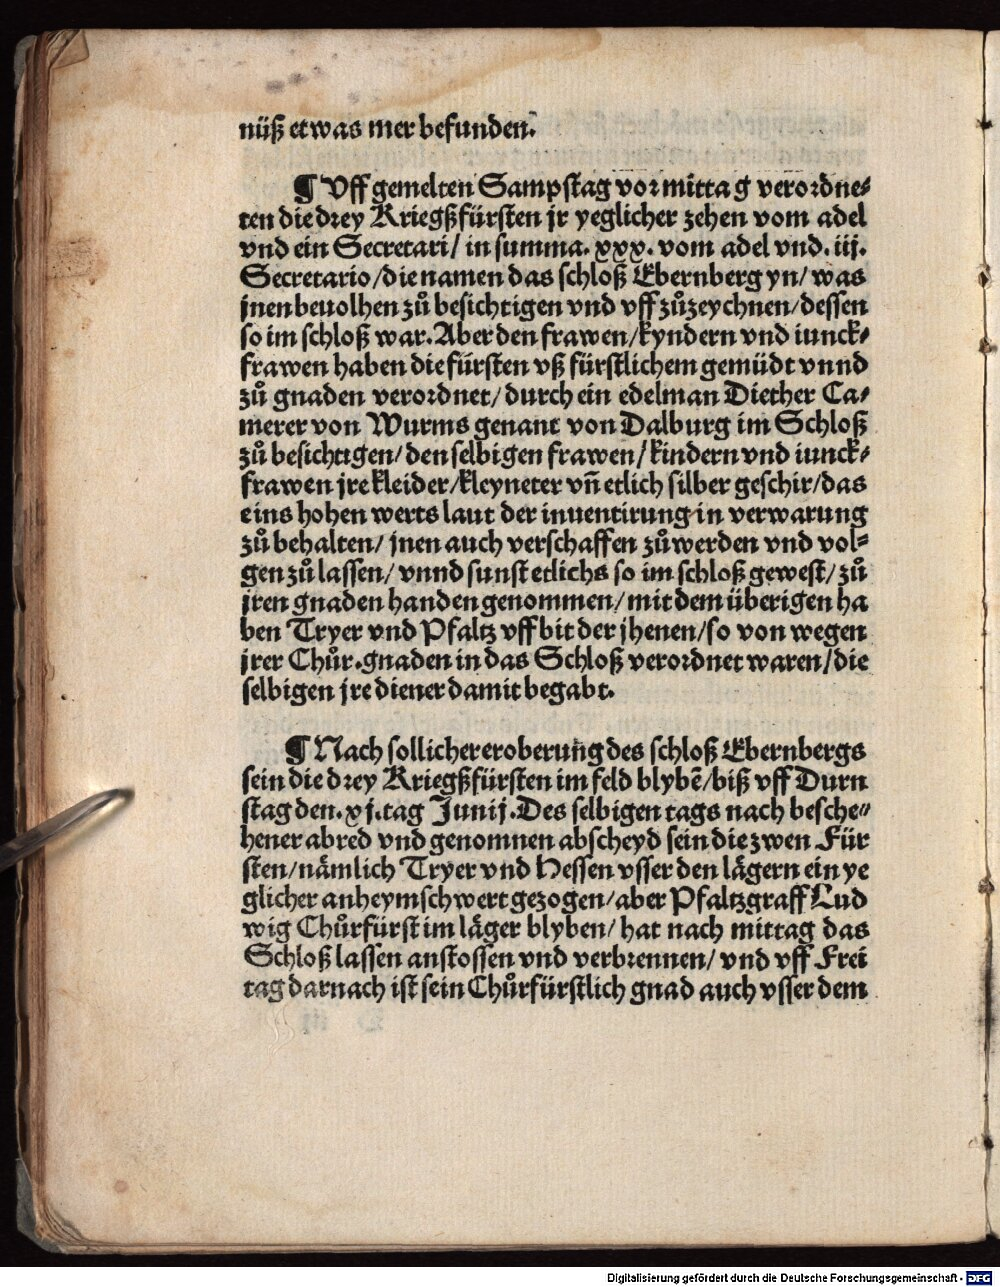 nüß etwas mer befunden.
¶ Uff gemelten Sampstag vormittag verordne⸗
ten die drey Kriegßfürsten jr yeglicher zehen vom adel
vnd ein Secretari/ in summa. xxx. vom adel vnd. iij.
Secretario/ die namen das schloß Ebernberg yn/ was
jnen beuolhen zů besichtigen vnd vff zůzeychnen/ dessen
so im schloß war. Aber den frawen/ kyndern vnd iunck⸗
frawen haben die fürsten vß fürstlichem gemüdt vnnd
zů gnaden verordnet/ durch ein edelman Diether Ca⸗
merer von Wurms genant von Dalburg im Schloß
zů besichtigen/ den selbigen frawen/ kindern vnd iunck⸗
frawen jre kleider/ kleyneter vñ etlich silber geschir/ das
eins hohen werts laut der inuentirung in verwarung
zů behalten/ jnen auch verschaffen zů werden vnd vol⸗
gen zů lassen/ vnnd sunst etlichs so im schloß gewest/ zů
jren gnaden handen genommen/ mit dem überigen ha
ben Tryer vnd Pfaltz vff bit der jhenen/ so von wegen
jrer Chůr. gnaden in das Schloß verordnet waren/ die
selbigen jre diener damit begabt.
¶ Nach sollicher eroberung des schloß Ebernbergs
sein die drey Kriegßfürsten im feld blybẽ/ biß vff Durn
stag den. xj. tag Junij. Des selbigen tags nach besche⸗
hener abred vnd genomnen abscheyd sein die zwen Für
sten/ nämlich Tryer vnd Hessen vsser den lägern ein ye
glicher anheymschwert gezogen/ aber Pfaltzgraff Lud
wig Chůrfürst im läger blyben/ hat nach mittag das
Schloß lassen anstossen vnd verbrennen/ vnd vff Frei
tag darnach ist sein Chůrfürstlich gnad auch vsser dem
Digitalisierung gefördert durch die Deutsche Forschungsgemeinschaft - DFG